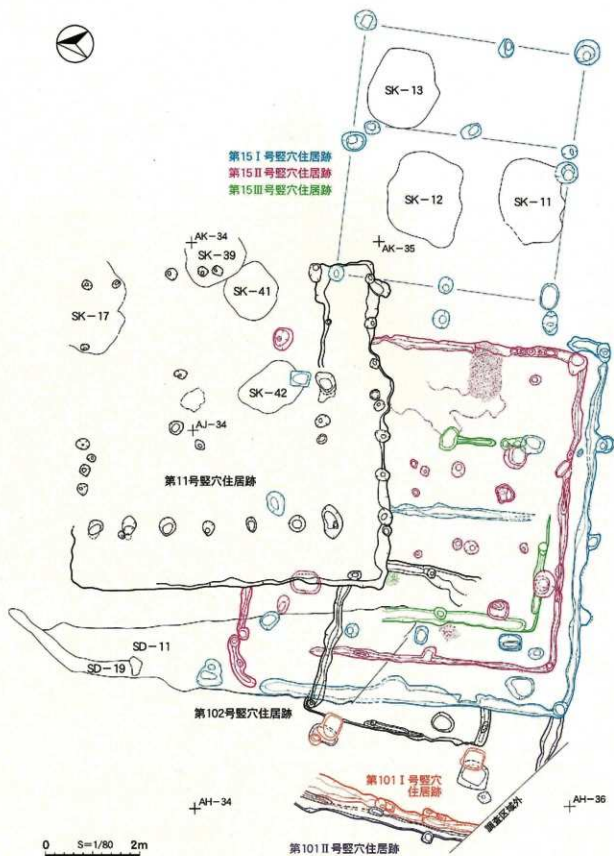 SK-13
第15Ⅰ号竪穴住居跡
第15Ⅱ号竪穴住居跡
第15Ⅲ号竪穴住居跡
SK-12
SK-11
AK-34
AK-35
SK-39
SK-41
SK-17
SK-42
AJ-34
第11号竪穴住居跡
SD-11
SD-19
第102号竪穴住居跡
第101Ⅰ号竪穴
住居跡
調査区域外
AH-34
AH-36
0 S=1/80 2m
第101Ⅱ号竪穴住居跡